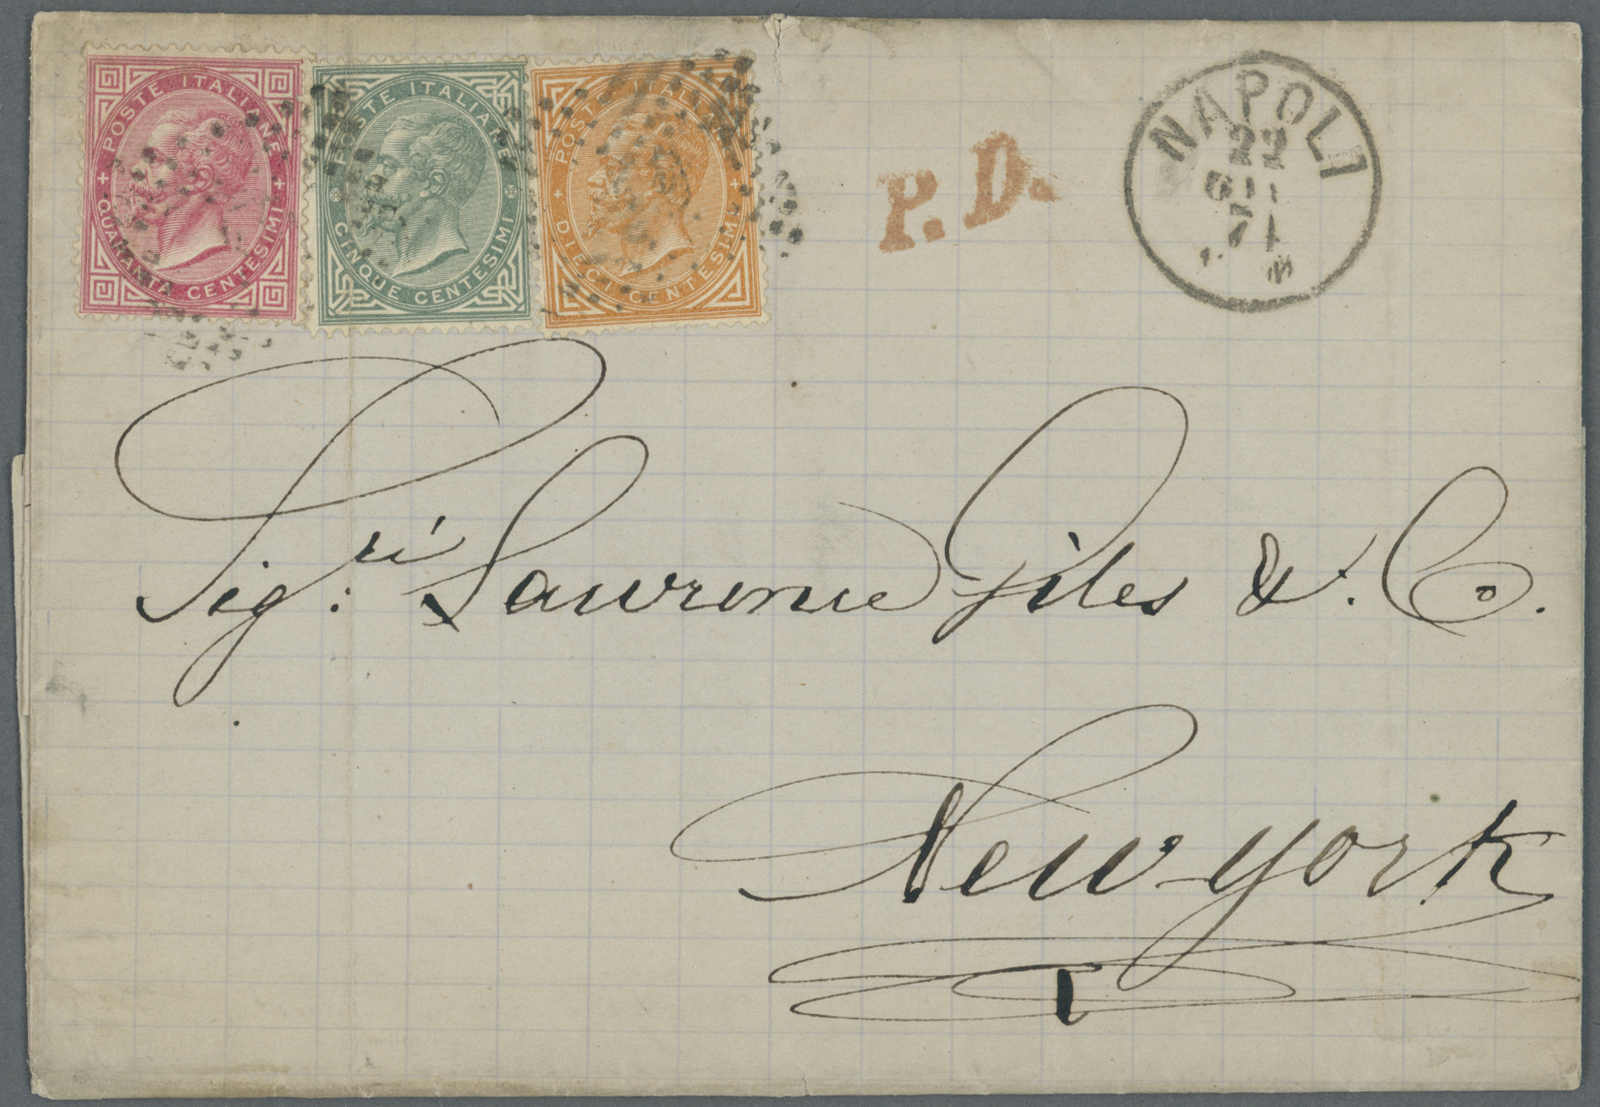 POSTE ITALIANE
QUARANTA CENTESIMI
POSTE ITALIANE
CINQUE CENTESIMI
POSTE ITALIANE
DIECI CENTESIMI
P.D.
NAPOLI
22
GIU
71
Sigri: Lawrence Giles & Co.
New York